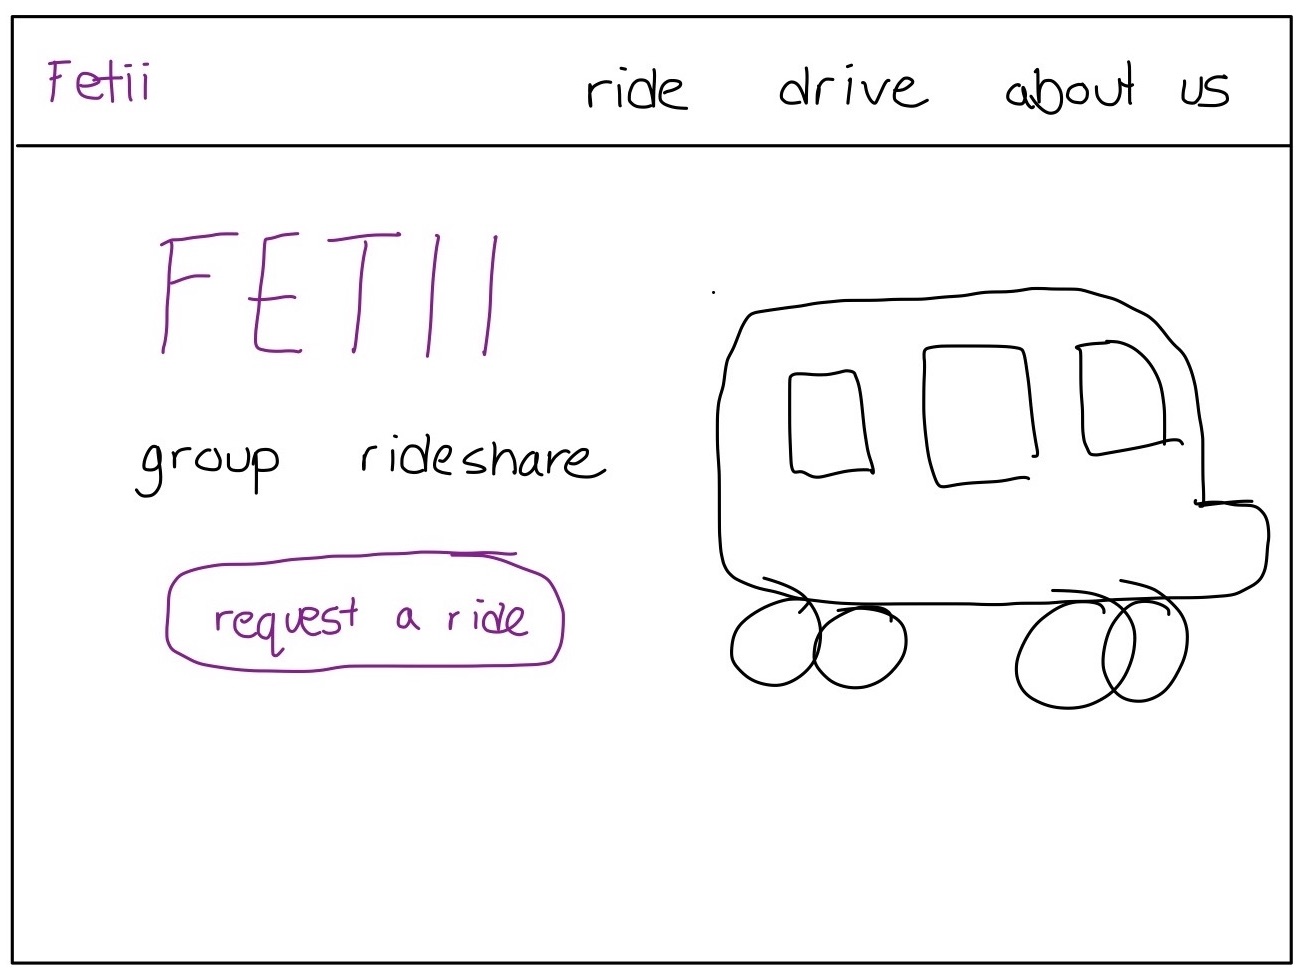 Fetii
ride drive about us
FETII
group rideshare
request a ride